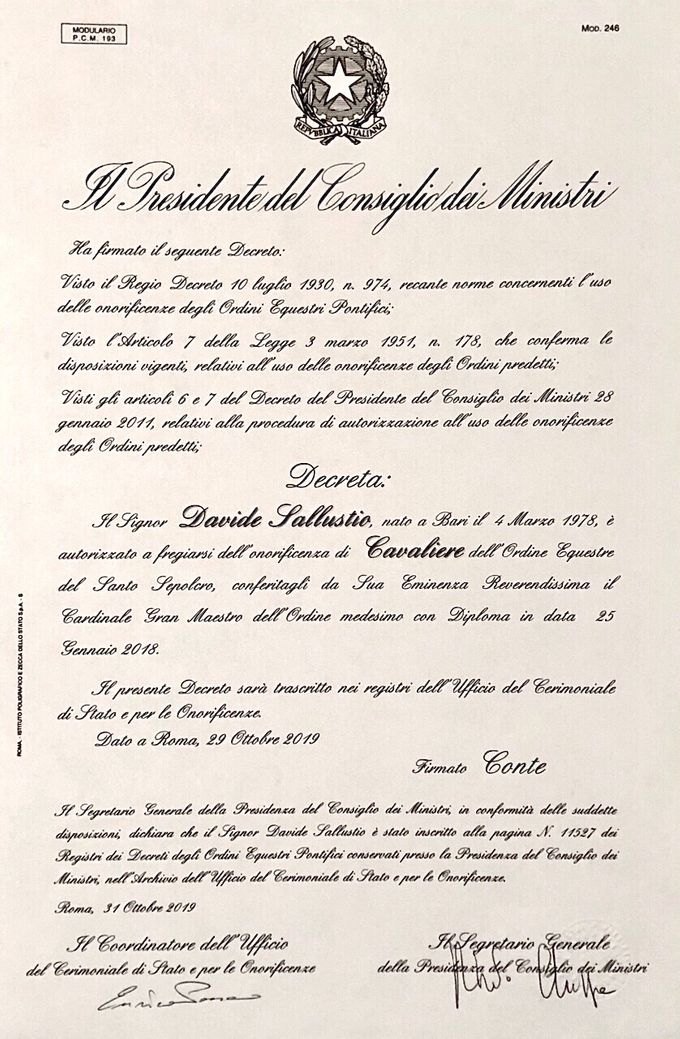 MODULARIO
P.C.M. 193
MOD. 246
REPVBBLICA ITALIANA
Il Presidente del Consiglio dei Ministri
Ha firmato il seguente Decreto:
Visto il Regio Decreto 10 luglio 1930, n. 974, recante norme concernenti l'uso
delle onorificenze degli Ordini Equestri Pontifici;
Visto l'Articolo 7 della Legge 3 marzo 1951, n. 178, che conferma le
disposizioni vigenti, relativi all'uso delle onorificenze degli Ordini predetti;
Visti gli articoli 6 e 7 del Decreto del Presidente del Consiglio dei Ministri 28
gennaio 2011, relativi alla procedura di autorizzazione all'uso delle onorificenze
degli Ordini predetti;
Decreta:
Il Signor Davide Sallustio, nato a Bari il 4 Marzo 1978, è
autorizzato a fregiarsi dell'onorificenza di Cavaliere dell'Ordine Equestre
del Santo Sepolcro, conferitagli da Sua Eminenza Reverendissima il
Cardinale Gran Maestro dell'Ordine medesimo con Diploma in data 25
Gennaio 2018.
Il presente Decreto sarà trascritto nei registri dell'Ufficio del Cerimoniale
di Stato e per le Onorificenze.
Dato a Roma, 29 Ottobre 2019
Firmato Conte
Il Segretario Generale della Presidenza del Consiglio dei Ministri, in conformità delle suddette
disposizioni, dichiara che il Signor Davide Sallustio è stato inscritto alla pagina N. 11527 dei
Registri dei Decreti degli Ordini Equestri Pontifici conservati presso la Presidenza del Consiglio dei
Ministri, nell'Archivio dell'Ufficio del Cerimoniale di Stato e per le Onorificenze.
Roma, 31 Ottobre 2019
Il Coordinatore dell'Ufficio
del Cerimoniale di Stato e per le Onorificenze
Il Segretario Generale
della Presidenza del Consiglio dei Ministri
ROMA - ISTITUTO POLIGRAFICO E ZECCA DELLO STATO S.p.A. - S